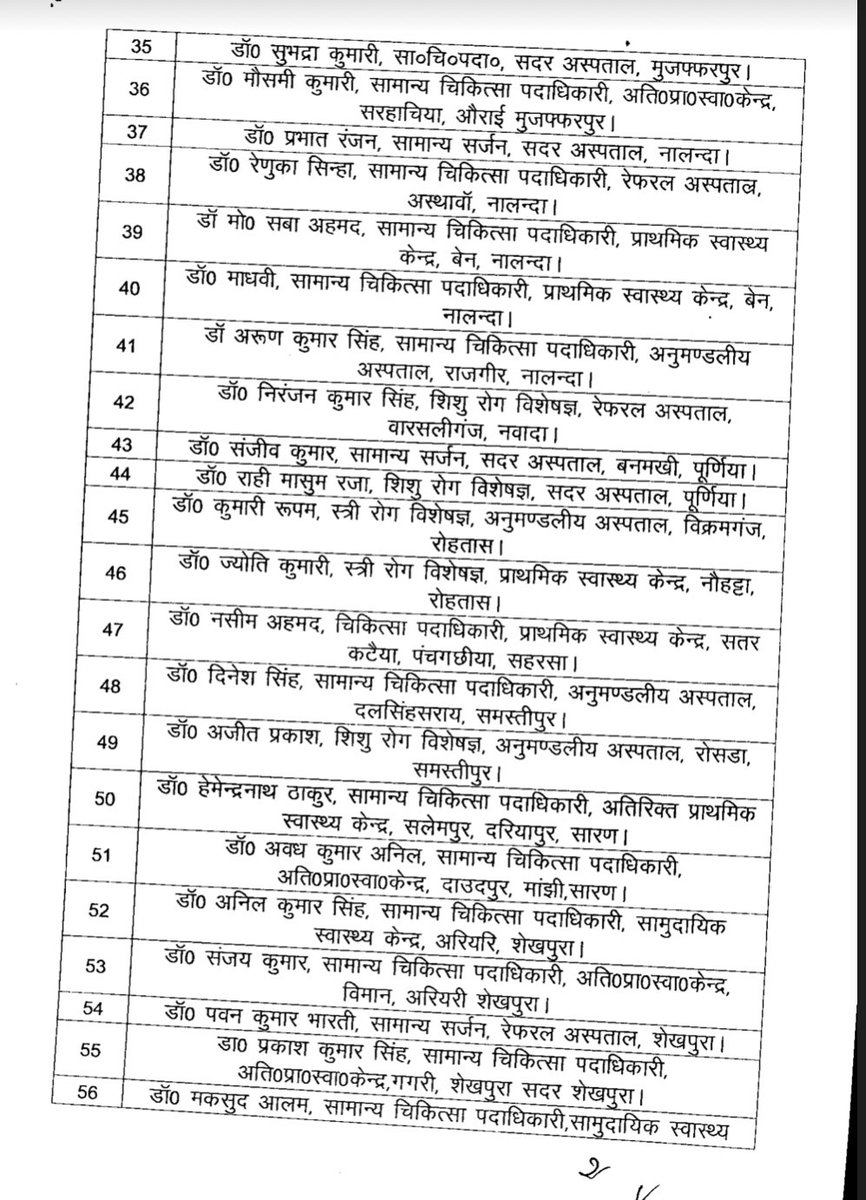 35 डॉ0 सुभद्रा कुमारी, सा०चि०पदा०, सदर अस्पताल, मुजफ्फरपुर।
36 डॉ0 मौसमी कुमारी, सामान्य चिकित्सा पदाधिकारी, अति0प्रा०स्वा0केन्द्र,
सरहाचिया, औराई मुजफ्फरपुर।
37 डॉ0 प्रभात रंजन, सामान्य सर्जन, सदर अस्पताल, नालन्दा।
38 डॉ0 रेणुका सिन्हा, सामान्य चिकित्सा पदाधिकारी, रेफरल अस्पताल,
अस्थावॉ, नालन्दा।
39 डॉ मो0 सबा अहमद, सामान्य चिकित्सा पदाधिकारी, प्राथमिक स्वास्थ्य
केन्द्र, बेन, नालन्दा।
40 डॉ0 माधवी, सामान्य चिकित्सा पदाधिकारी, प्राथमिक स्वास्थ्य केन्द्र, बेन,
नालन्दा।
41 डॉ अरूण कुमार सिंह, सामान्य चिकित्सा पदाधिकारी, अनुमण्डलीय
अस्पताल, राजगीर, नालन्दा।
42 डॉ0 निरंजन कुमार सिंह, शिशु रोग विशेषज्ञ, रेफरल अस्पताल,
वारसलीगंज, नवादा।
43 डॉ0 संजीव कुमार, सामान्य सर्जन, सदर अस्पताल, बनमखी, पूर्णिया।
44 डॉ0 राही मासुम रजा, शिशु रोग विशेषज्ञ, सदर अस्पताल, पूर्णिया।
45 डॉ0 कुमारी रूपम, स्त्री रोग विशेषज्ञ, अनुमण्डलीय अस्पताल, विक्रमगंज,
रोहतास।
46 डॉ0 ज्योति कुमारी, स्त्री रोग विशेषज्ञ, प्राथमिक स्वास्थ्य केन्द्र, नौहट्टा,
रोहतास।
47 डॉ0 नसीम अहमद, चिकित्सा पदाधिकारी, प्राथमिक स्वास्थ्य केन्द्र, सतर
कटैया, पंचगछीया, सहरसा।
48 डॉ0 दिनेश सिंह, सामान्य चिकित्सा पदाधिकारी, अनुमण्डलीय अस्पताल,
दलसिंहसराय, समस्तीपुर।
49 डॉ0 अजीत प्रकाश, शिशु रोग विशेषज्ञ, अनुमण्डलीय अस्पताल, रोसडा,
समस्तीपुर।
50 डॉ0 हेमेन्द्रनाथ ठाकुर, सामान्य चिकित्सा पदाधिकारी, अतिरिक्त प्राथमिक
स्वास्थ्य केन्द्र, सलेमपुर, दरियापुर, सारण।
51 डॉ0 अवध कुमार अनिल, सामान्य चिकित्सा पदाधिकारी,
अति0प्रा०स्वा0केन्द्र, दाउदपुर, मांझी,सारण।
52 डॉ0 अनिल कुमार सिंह, सामान्य चिकित्सा पदाधिकारी, सामुदायिक
स्वास्थ्य केन्द्र, अरियरि, शेखपुरा।
53 डॉ0 संजय कुमार, सामान्य चिकित्सा पदाधिकारी, अति0प्रा0स्वा0केन्द्र,
विमान, अरियरी शेखपुरा।
54 डॉ0 पवन कुमार भारती, सामान्य सर्जन, रेफरल अस्पताल, शेखपुरा।
55 डा0 प्रकाश कुमार सिंह, सामान्य चिकित्सा पदाधिकारी,
अति0प्रा०स्वा0केन्द्र,गगरी, शेखपुरा सदर शेखपुरा।
56 डॉ0 मकसुद आलम, सामान्य चिकित्सा पदाधिकारी,सामुदायिक स्वास्थ्य